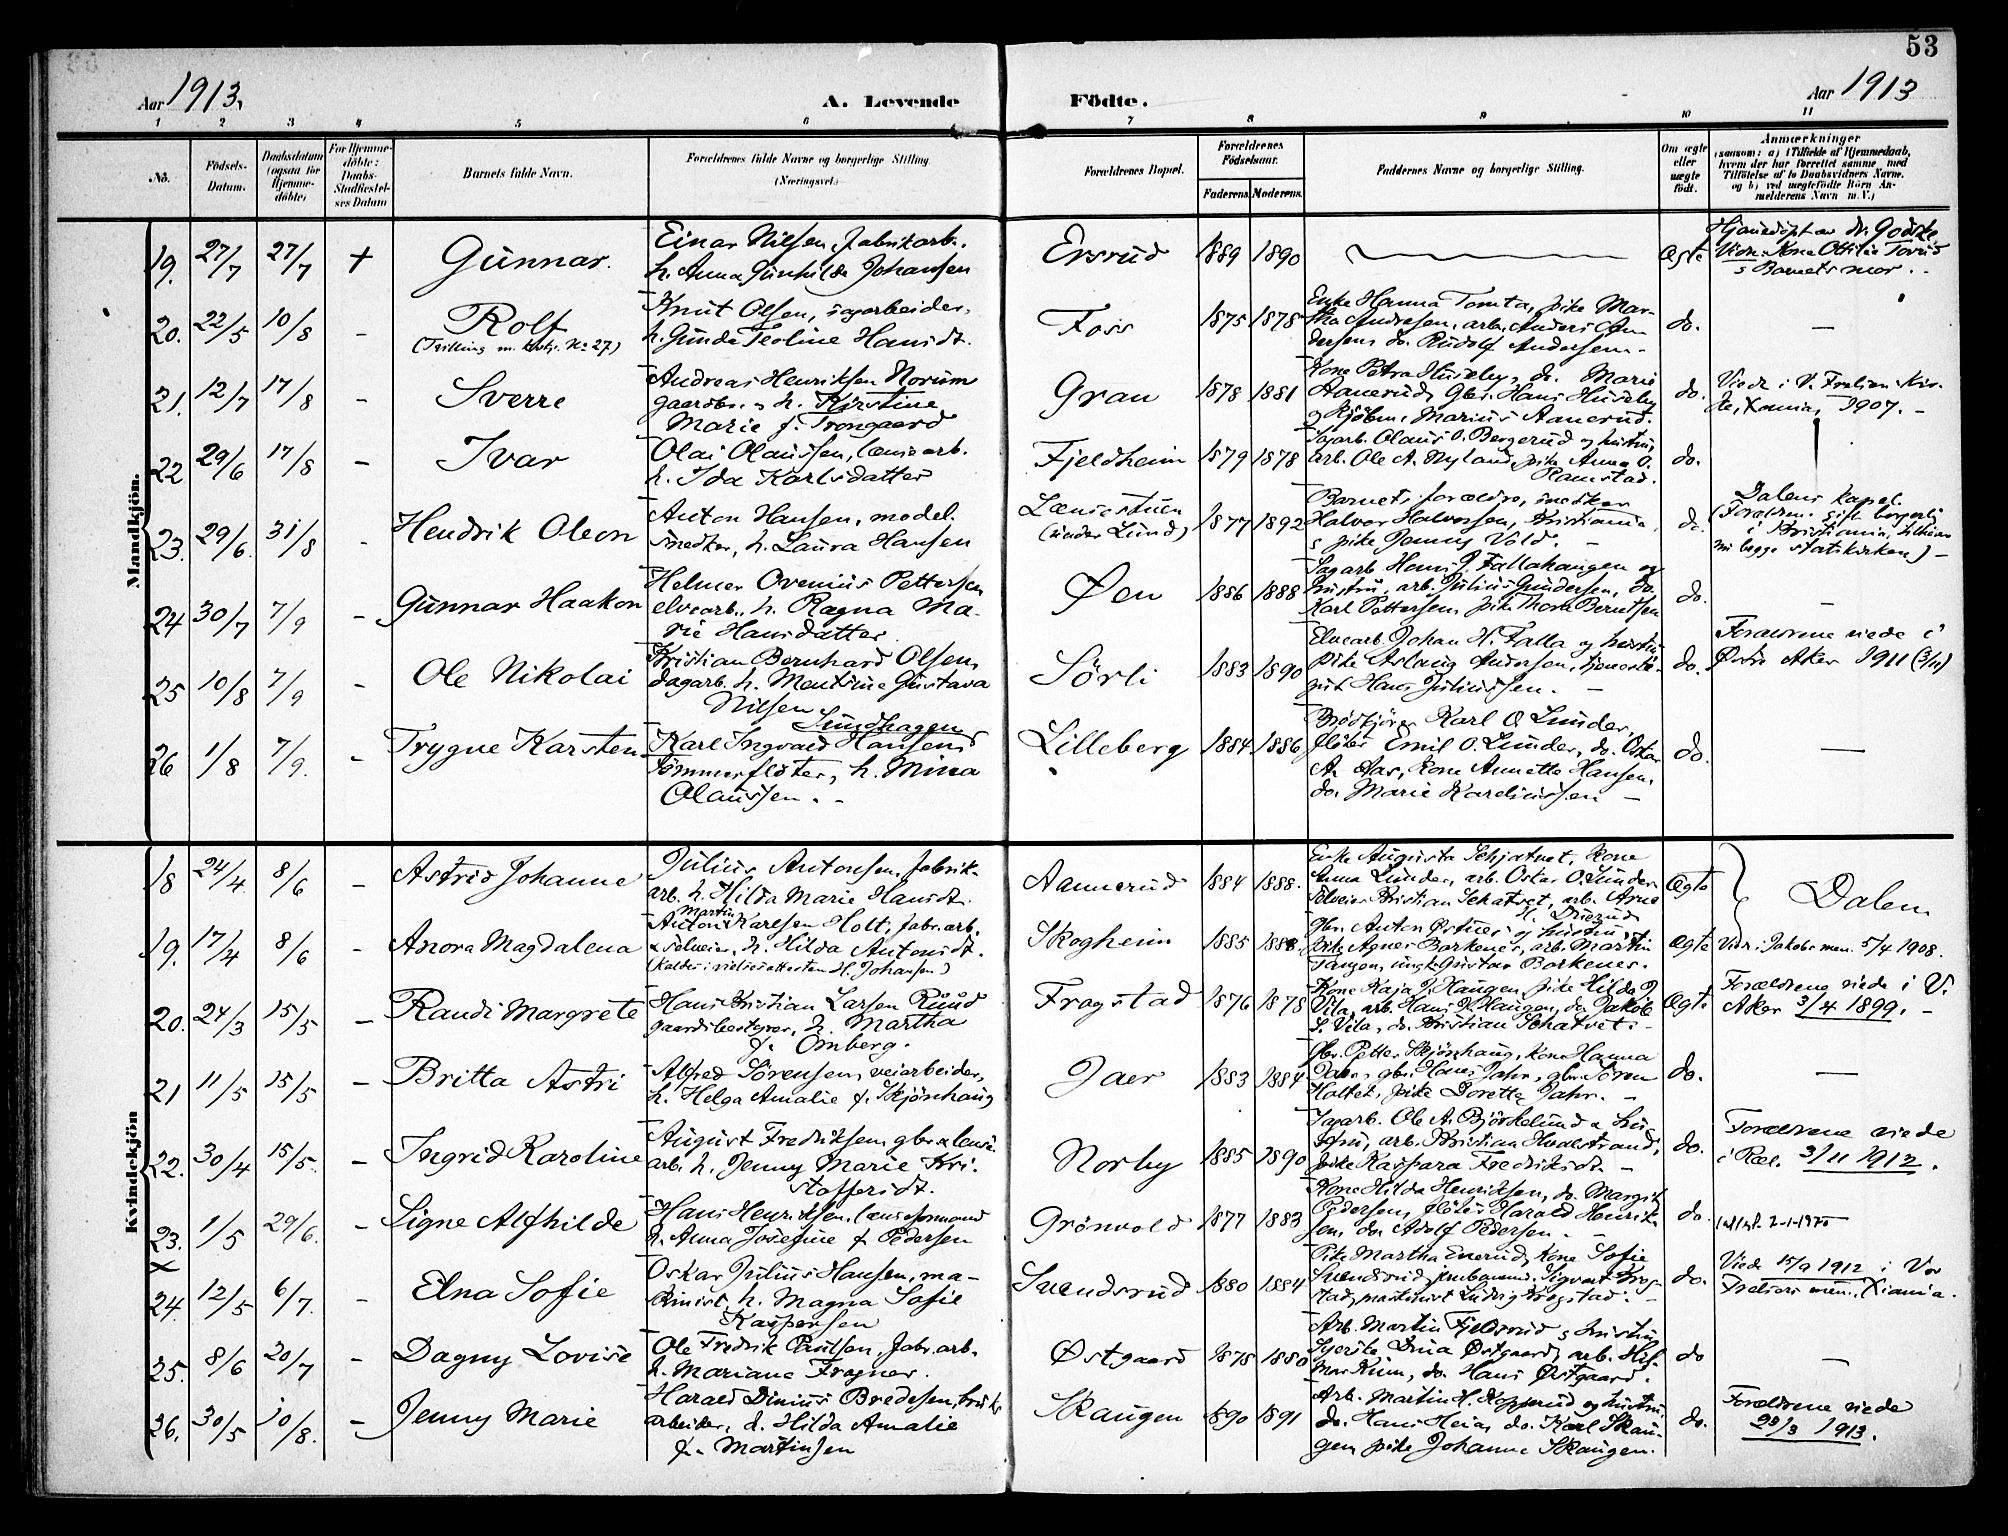 53
Aar 1913.
A. Levende
Födte.
Aar 1913
1 2 3 4 5 6 7 8 9 10 11
No.
Födsels-
Datum.
Daabsdatum
(ogsaa for
Hjemme-
döbte)
For Hjemme-
döbte:
Daabs-
Stadfæstel-
ses Datum
Barnets fulde Navn.
Forældrenes fulde Navne og borgerlige Stilling.
(Næringsvei.)
Forældrenes Bopæl.
Forældrenes
Födselsaar.
Faderens. Moderens.
Faddernes Navne og borgerlige Stilling.
Om ægte
eller
uægte
födt.
Anmærkninger
(saasom: a) i Tilfælde af Hjemmedaab,
hvem der har forrettet samme med
Tilföielse af to Daabsvidners Navne.
og b) ved uægtefödte Börn An-
melderens Navn m.V.)
Mandkjön.
19. 27/7 27/7 + Gunnar.
Einar Nilsen, fabrikarb.
h. Anna Gunhilde Johansen
Ersrud 1889 1890 Ægte
Hjemmedøpt av dr. Godske
Vidn: Kone Ottilie Torud
& Barnets mor.
20. 22/5 10/8 - Rolf
(Tvilling m. kvkj. No 27)
Knut Olsen, sagarbeider,
h. Gunda Teoline Hansdt.
Foss 1875 1878
Enke Hanna Tomta, pike Mar-
tha Andresen, arb. Anders An-
dersen, do. Rudolf Andersen.
do. —
21. 12/7 17/8 - Sverre
Andreas Henriksen Norum
gaardbr. & h. Kirstine
Marie f. Trongaard
Gran 1878 1881
Kone Petra Huseby, do. Marie
Aanerud, Gbr. Hans Huseby
& Kjøbm. Marius Aanerud.
do.
Viede i V. Frelsers Kir-
ke, Xania, 1907. -
22 29/6 17/8 - Ivar
Olai Olaussen, lænsearb.
h. Ida Karlsdatter
Fjeldheim 1879 1878
Sagarb. Olaus O. Bergerud & hustru,
arb. Ole A. Nyland, pike Anna O.
Ramstad.
do.
23. 29/6. 31/8 - Hendrik Oleon
Anton Hansen, model-
snedker, h. Laura Hansen
Lænsestuen
(under Lund) 1877 1892
Barnets forældre, snedker
Halvor Halvorsen, Kristiania,
& pike Jenny Vold. -
do.
Dalens kapel.
(Forældrene gift borgerlig
i Kristiania, tilhører
nu begge statskirken) -
24 30/7 7/9 - Gunnar Haakon
Helmer Ovenius Pettersen
elvearb., h. Ragna Ma-
rie Hansdatter.
Øen 1886 1888
Sagarb Hans J. Fallahaugen og
hustru, arb. Julius Gundersen, do.
Karl Pettersen, pike Thora Berntsen
do. —
25 10/8 7/9 - Ole Nikolai
Kristian Bernhard Olsen,
dagarb. h. Mentine Gustava
Nilsen
Sörli 1883 1890
Elvearb. Johan H. Falla og hustru
pike Aslaug Andersen, tjeneste-
gut Hans Juliussen. -
do.
Forældrene viede i
Østre Aker 1911 (3/11)
26 1/8 7/9. - Trygve Karsten
Lundhagen
Karl Ingvald Hansen
tømmerfløter, h. Mina
Olaussen. -
Lilleberg 1884 1886
Brødkjører Karl O. Lunder,
fløter Emil O. Lunder, do. Oskar
A. Aas, Kone Annette Hansen,
do. Marie Kareliussen -
do. —
Kvindekjön
18 24/4 8/6 - Astrid Johanne
Julius Antonsen, fabrik-
arb. h. Hilda Marie Hansdt.
Aannerud 1884 1888.
Enke Augusta Schjatvet, Kone
Anna Lunder, arb. Oskar O. Lunder
Kristian Schatvet, arb. Arne
Ægte
Dalen
19. 17/4 8/6 - Anora Magdalena
Martin
Anton Karlsen Holt, fabr. arb.
h. Hilda Antonsdt.
(Kaldes i vielsesattesten H. Johansen)
Skogheim 1885 1888
Gbr. Anton Østnes og hustru,
pike Agnes Barkenes, arb. Martin
Tangen, ungk. Gustav Barkenes.
Ægte Vidr. i Jakobs men. 5/4 1908.
20. 24/3 15/5 - Randi Margrete
Hans Kristian Larsen Ruud
gaardsbestyrer, h. Martha
f. Omberg.
Frogstad 1876 1878
Kone Kaja J. Haugen, pike Hilda J.
Vila, arb. Hans J. Haugen, do. Jakob
S. Vila, do. Kristian Schatvet. -
Ægte
Forældrene viede i V.
Aker 3/4 1899. -
21 11/5 15/5 - Britta Astri
Alfred Sörensen, veiarbeider,
h. Helga Amalie f. Skjönhaug
Jaer 1883 1884
Gbr. Petter Skjønhaug, Kone Hanna
Jahr, gbr. Hans Jahr, gbr. Sören
Holtet, pike Dorethea Jahr. -
do. —
22. 30/4 15/5. - Ingrid Karoline
August Fredriksen, gbr. & lænse-
arb. h. Jenny Marie Kri-
stoffersdt.
Norby 1885 1890
Sagarb. Ole A. Björkelund & hu-
stru, arb. Kristian Hvalstrand,
pike Kaspara Fredriksdt. -
do.
Forældrene viede
i Ræl. 3/11 1912.
23. 1/5 29/6. - Signe Alfhilde
Hans Henriksen, lænseformand
h. Anna Josefine f Pedersen
Grönvold 1877 1883
Kone Hilda Henriksen, do. Margit
Pedersen, fløter Harald Henrik-
sen, do. Adolf Pedersen. -
do.
2-1-1970
×
24. 12/5 6/7. - Elna Sofie
Oskar Julius Hansen, ma-
skinist, h. Magna Sofie
Kaspersen
Svendsrud 1880 1884
Pike Martha Enerud, Kone Sofie
Svendsrud, Sigvart Frog-
stad, maskinist Ludvig Frogstad. -
do.
Viede 15/9 1912 i Vor
Frelsers men., Xiania.
25. 8/6 20/7 - Dagny Lovise
Ole Fredrik Paulsen, fabr. arb.
h. Mariane Fragner.
Østgaard 1878 1880
Arb. Martin Fjeldsrud & hustru,
Syerske Dina Østgaard, arb. Hil-
mar Ruud, do. Hans Østgaard.
do —
26. 30/5 10/8. - Jenny Marie
Harald Dinius Bredesen, bruks-
arbeider, h. Hilda Amalie
f. Martinsen
Skaugen 1890 1891
Arb. Martin H. Kopperud og hustru,
do. Hans Heia, do. Karl Skau-
gen, pike Johanne Skaugen.
do.
Forældrene viede
23/3 1913.